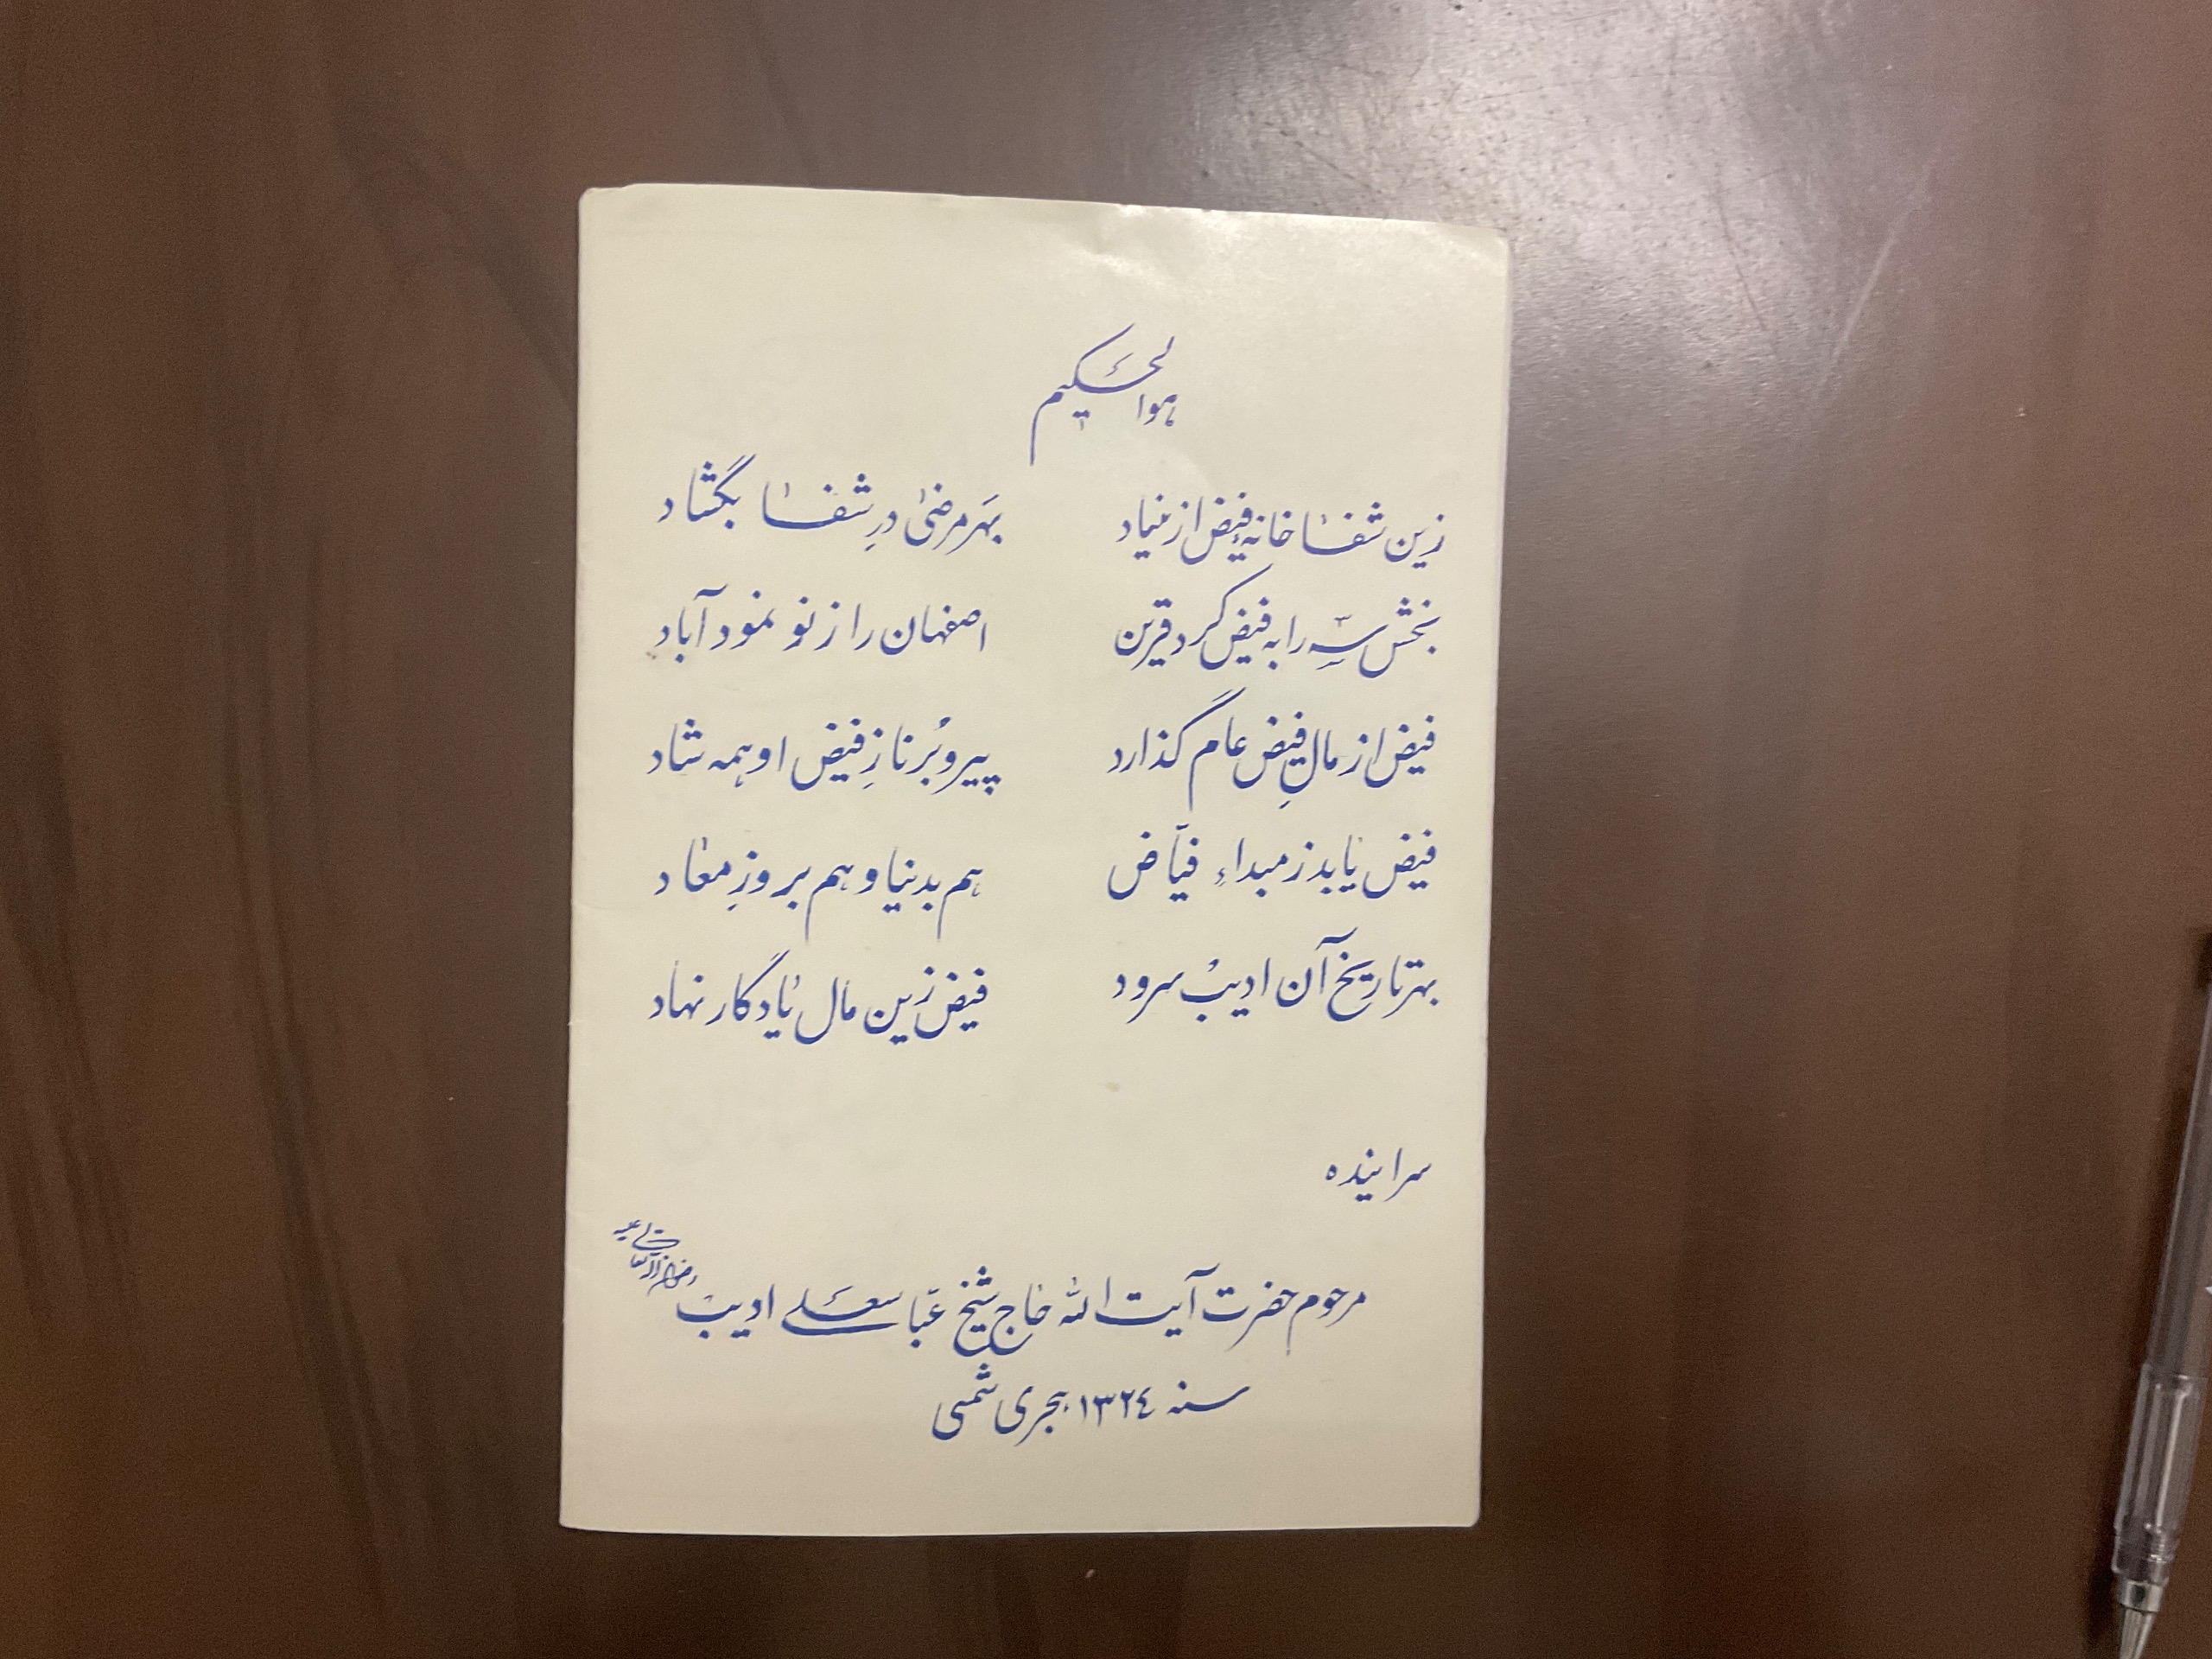 هوالحکیم
زین شفا خانه فیض از بنیاد بهر مرضیٰ درِ شفا بگشاد
بخش سه را به فیض کرد قرین اصفهان را ز نو نمود آباد
فیض از مالِ فیض عام گذارد پیر و بُرنا زِ فیض او همه شاد
فیض یابد ز مبداءِ فیّاض هم بدنیا و هم بروزِ معاد
بهر تاریخ آن ادیب سرود فیض زین مال یادگار نهاد
سراینده
مرحوم حضرت آیت الله حاج شیخ عبّاسعلی ادیب رضوان الله تعالی علیه
سنه ۱۳۲٤ هجری شمسی